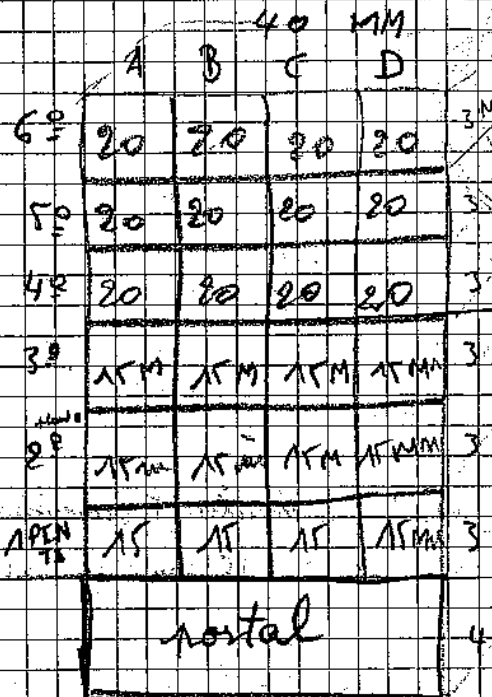 40 MM
A B C D
6º 20 20 20 20 3
5º 20 20 20 20 3
4º 20 20 20 20 3
3º 15M 15M 15M 15MM 3
2º 15m 15m 15M 15MM 3
1 15 15 15 15MM 3
portal 4